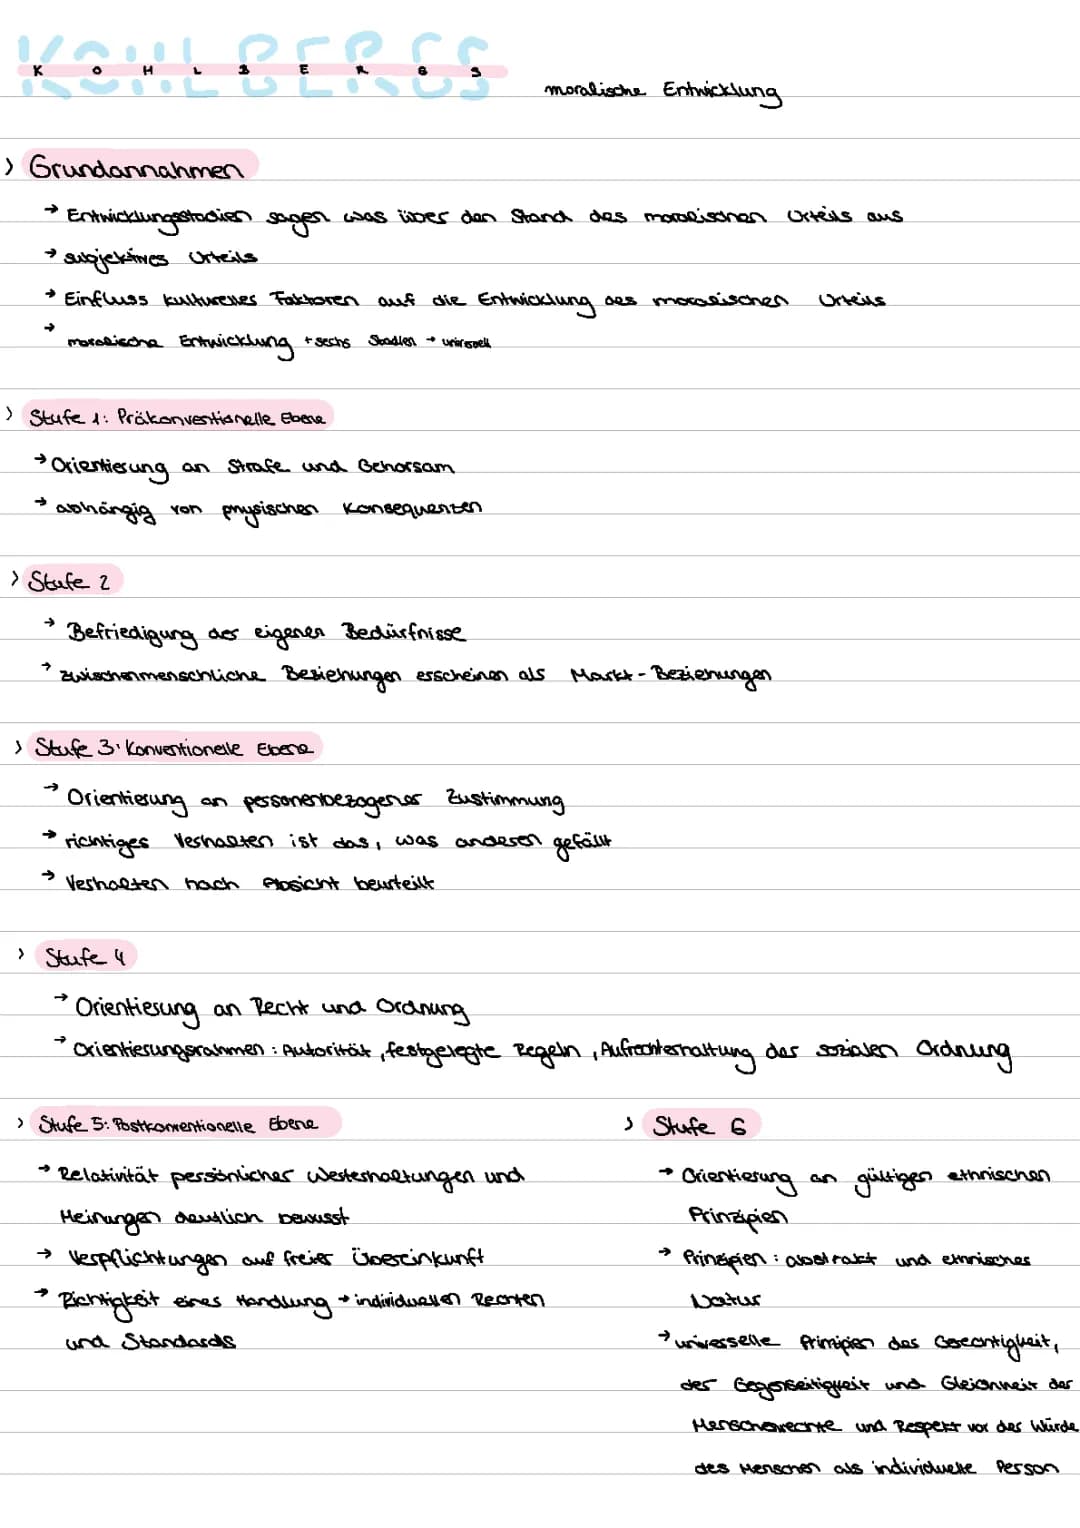 KOHLBERGS
moralische Entwicklung
> Grundannahmen
→ Entwicklungsstadien sagen was über den Stand des moralischen Urteils aus
→ subjektives Urteils
→ Einfluss kulturelles Faktoren auf die Entwicklung des moralischen Urteils
→ moralische Entwicklung + sechs Stadien → universell
> Stufe 1: Präkonventionelle Ebene
→ Orientierung an Strafe und Gehorsam
→ abhängig von physischen Konsequenzen
> Stufe 2
→ Befriedigung der eigenen Bedürfnisse
→ zwischenmenschliche Beziehungen erscheinen als Markt-Beziehungen
> Stufe 3: Konventionelle Ebene
→ Orientierung an personenbezogener Zustimmung
→ richtiges Verhalten ist das, was anderen gefällt
→ Verhalten nach Absicht beurteilt
> Stufe 4
→ Orientierung an Recht und Ordnung
→ Orientierungsrahmen: Autorität, festgelegte Regeln, Aufrechterhaltung der sozialen Ordnung
> Stufe 5: Postkonventionelle Ebene
→ Relativität persönlicher Werterhaltungen und
Meinungen deutlich bewusst
→ Verpflichtungen auf freier Übereinkunft
→ Richtigkeit eines Handlung → individuellen Rechten
und Standards
> Stufe 6
→ Orientierung an gültigen ethnischen
Prinzipien
→ Prinzipien: abstrakt und ethnisches
Natur
→ universelle Prinzipien des Gerechtigkeit,
der Gegenseitigkeit und Gleichheit der
Menschenrechte und Respekt vor der Würde
des Menschen als individuelle Person